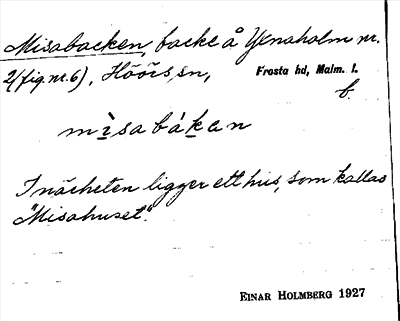 Misabacken, backe å Yxnaholm nr.
2 (fig. nr. 6), Höörs, sn, Frosta hd, Malm. l.
b.
mìsabákan
I närheten ligger ett hus, som kallas
"Misahuset".
EINAR HOLMBERG 1927